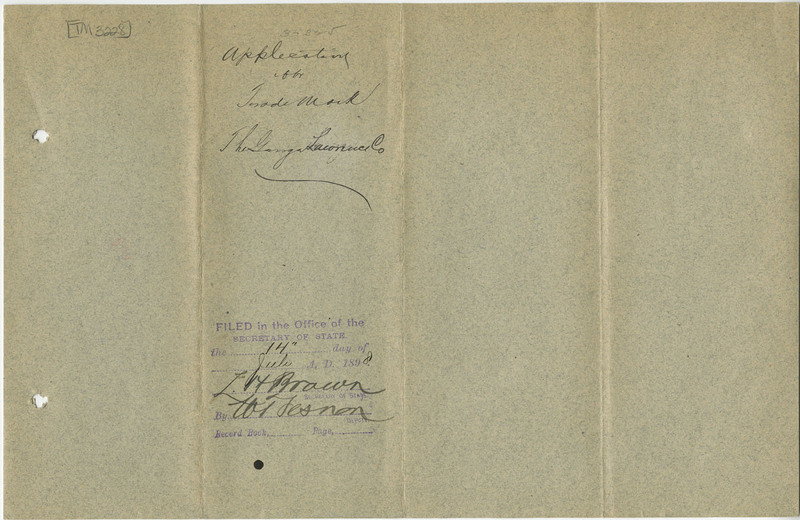 [TM 3228]
Application
for
Trade Mark
The George Lawrence Co
FILED in the Office of the
SECRETARY OF STATE,
the 14" day of
July A. D. 1898
L. H. Brown
Secretary of State
By W. T. Vernon
Deputy
Record Book, Page,